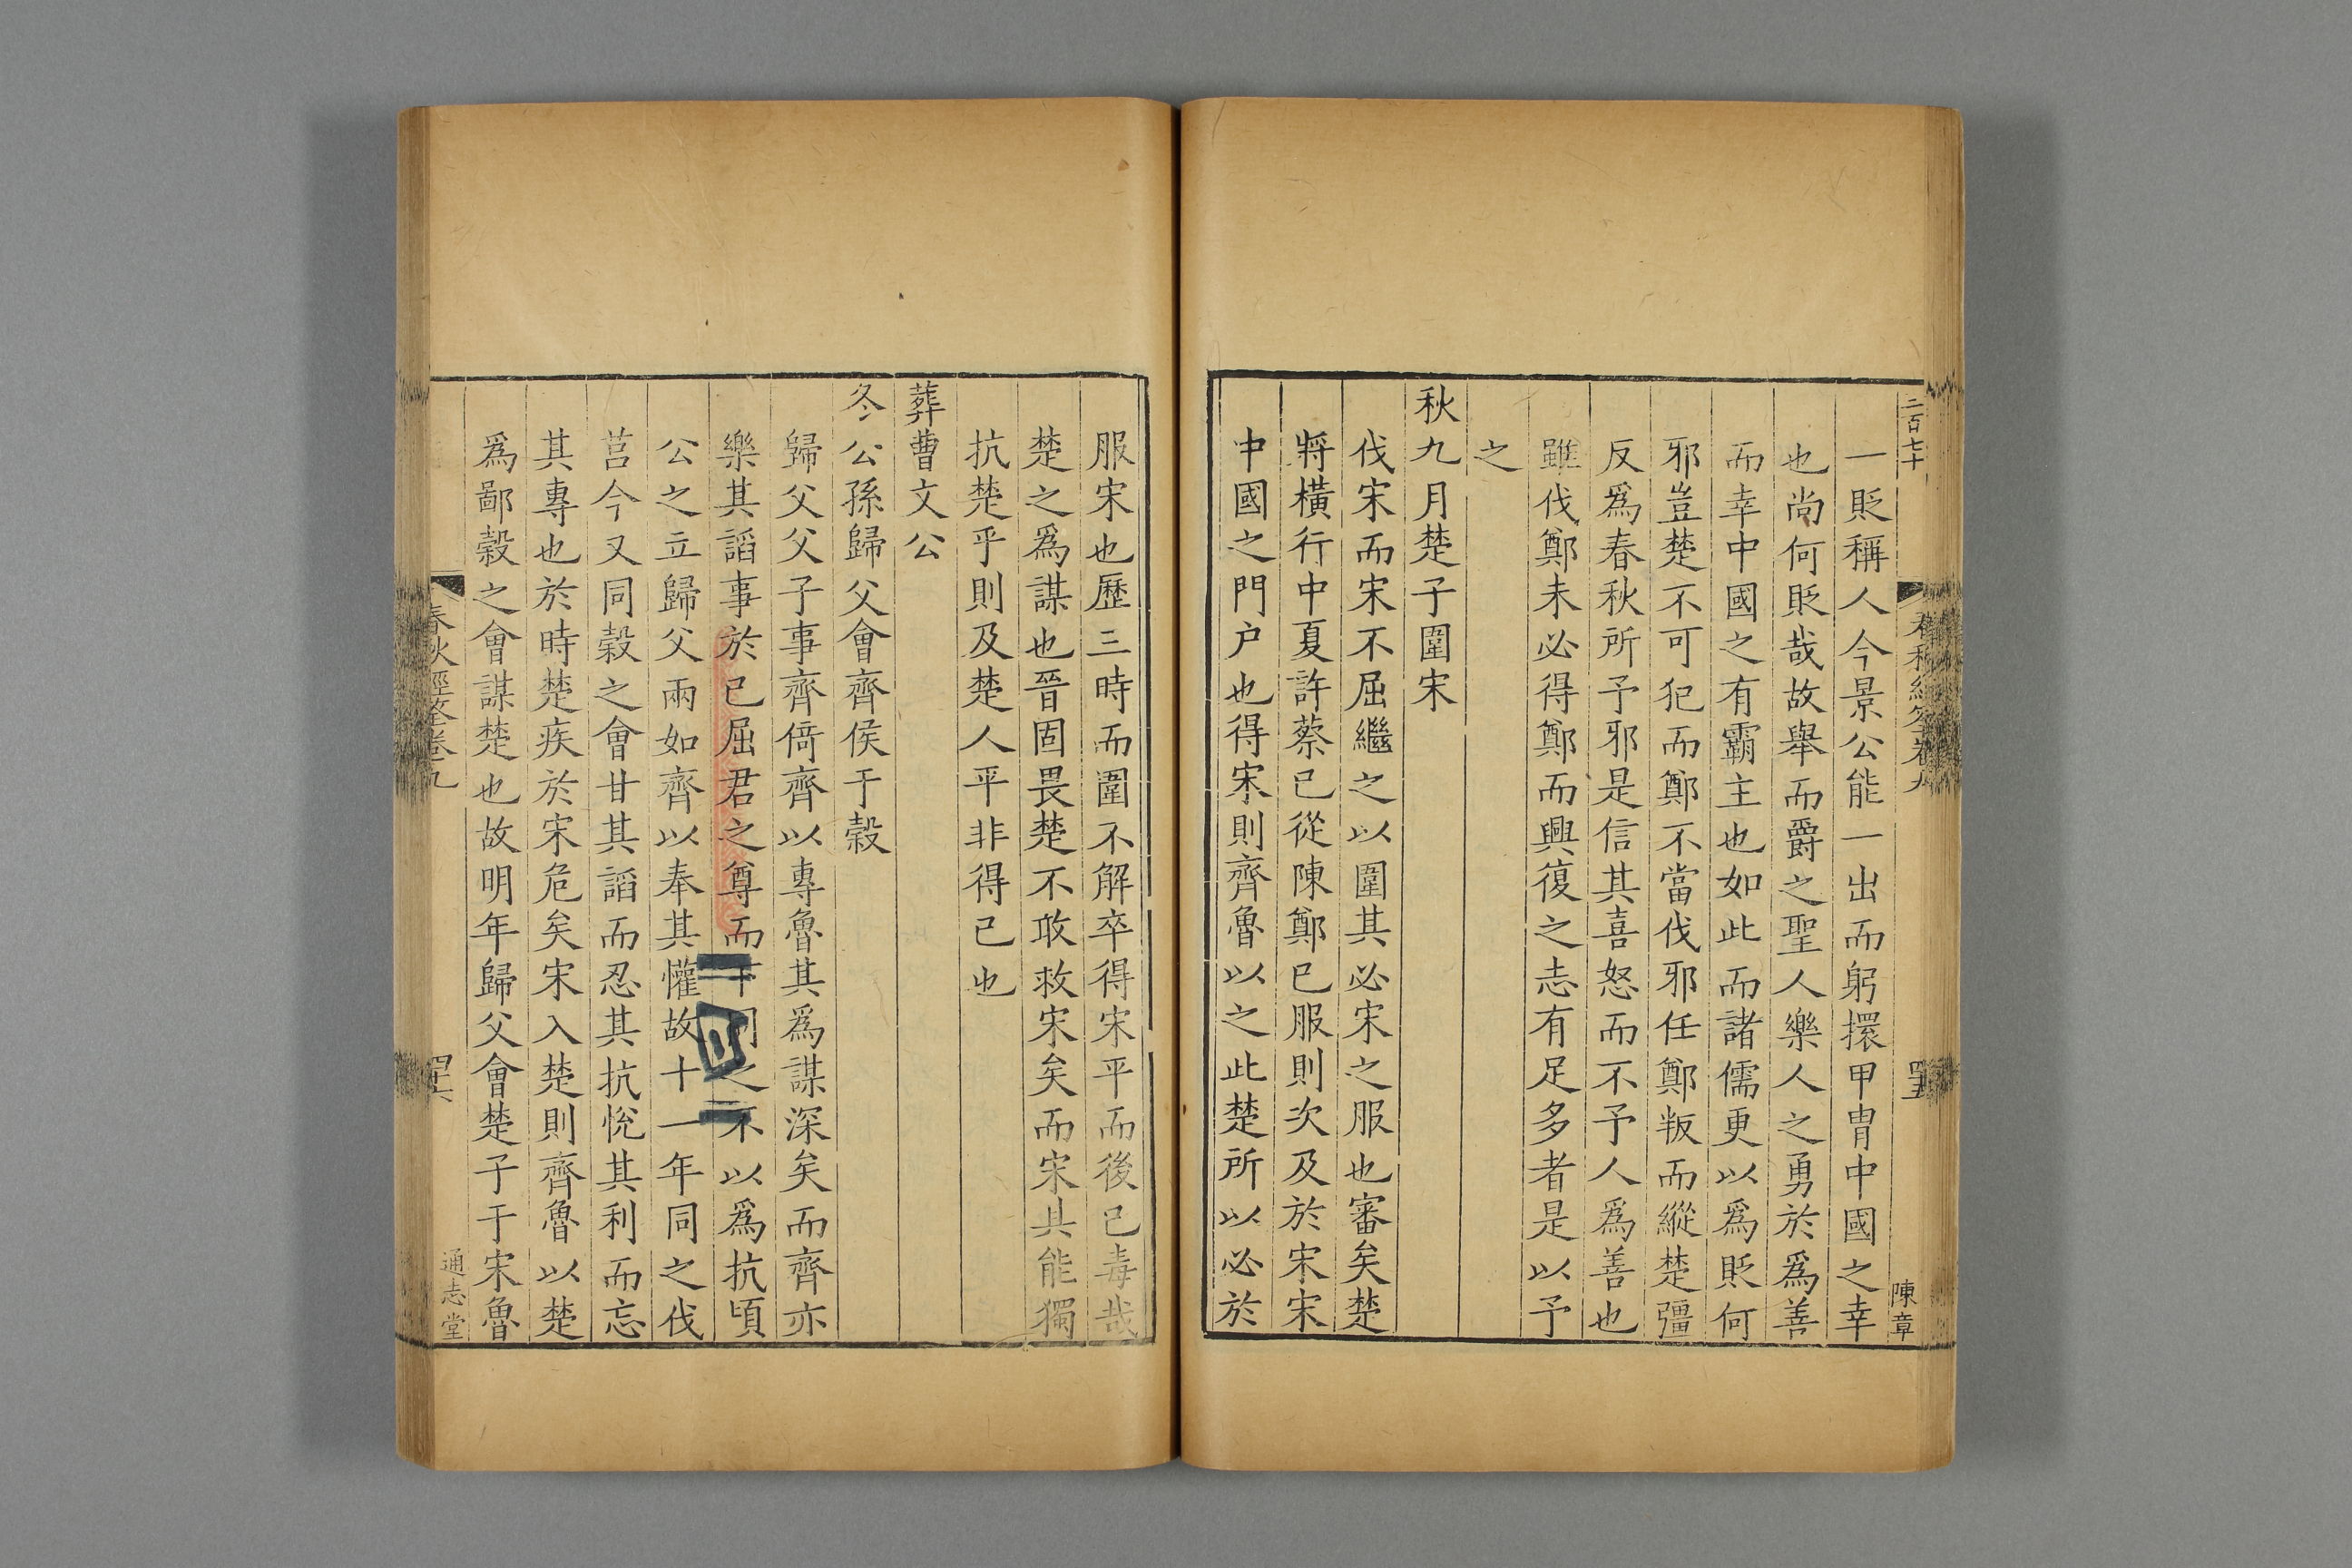 二百七十
春秋經筌卷九
四十五
陳章
一貶稱人今景公能一出而躬擐甲冑中國之幸
也尚何貶哉故舉而爵之聖人樂人之勇於爲善
而幸中國之有霸主也如此而諸儒更以爲貶何
邪豈楚不可犯而鄭不當伐邪任鄭叛而縱楚彊
反爲春秋所予邪是信其喜怒而不予人爲善也
雖伐鄭未必得鄭而興復之志有足多者是以予
之
秋九月楚子圍宋
伐宋而宋不屈繼之以圍其必宋之服也審矣楚
將橫行中夏許蔡已從陳鄭已服則次及於宋宋
中國之門户也得宋則齊魯以之此楚所以必於
服宋也歷三時而圍不解卒得宋平而後已毒哉
楚之爲謀也晉固畏楚不敢救宋矣而宋其能獨
抗楚乎則及楚人平非得已也
葬曹文公
冬公孫歸父會齊侯于穀
歸父父子事齊倚齊以專魯其爲謀深矣而齊亦
樂其謟事於已屈君之尊而下之不以爲抗頃
公之立歸父兩如齊以奉其懽故十一年同之伐
莒今又同穀之會甘其謟而忍其抗悅其利而忘
其專也於時楚疾於宋危矣宋入楚則齊魯以楚
爲鄙穀之會謀楚也故明年歸父會楚子于宋魯
春秋經筌卷九
四十六
通志堂